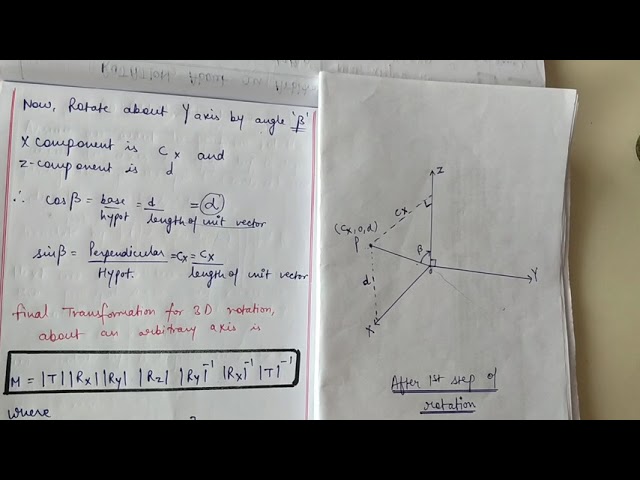 Now, Rotate about Y axis by angle 'β'
X component is Cx and
Z-component is d
∴ cosβ = base/hypot = d/length of unit vector = d
sinβ = Perpendicular/Hypot. = Cx = Cx/length of unit vector
final Transformation for 3D rotation,
about an arbitrary axis is
M = |T| |Rx| |Ry| |Rz| |Ry|⁻¹ |Rx|⁻¹ |T|⁻¹
where
Z
Cx
L
(Cx, 0, d)
P
β
d
0
Y
X
After 1st step of
rotation